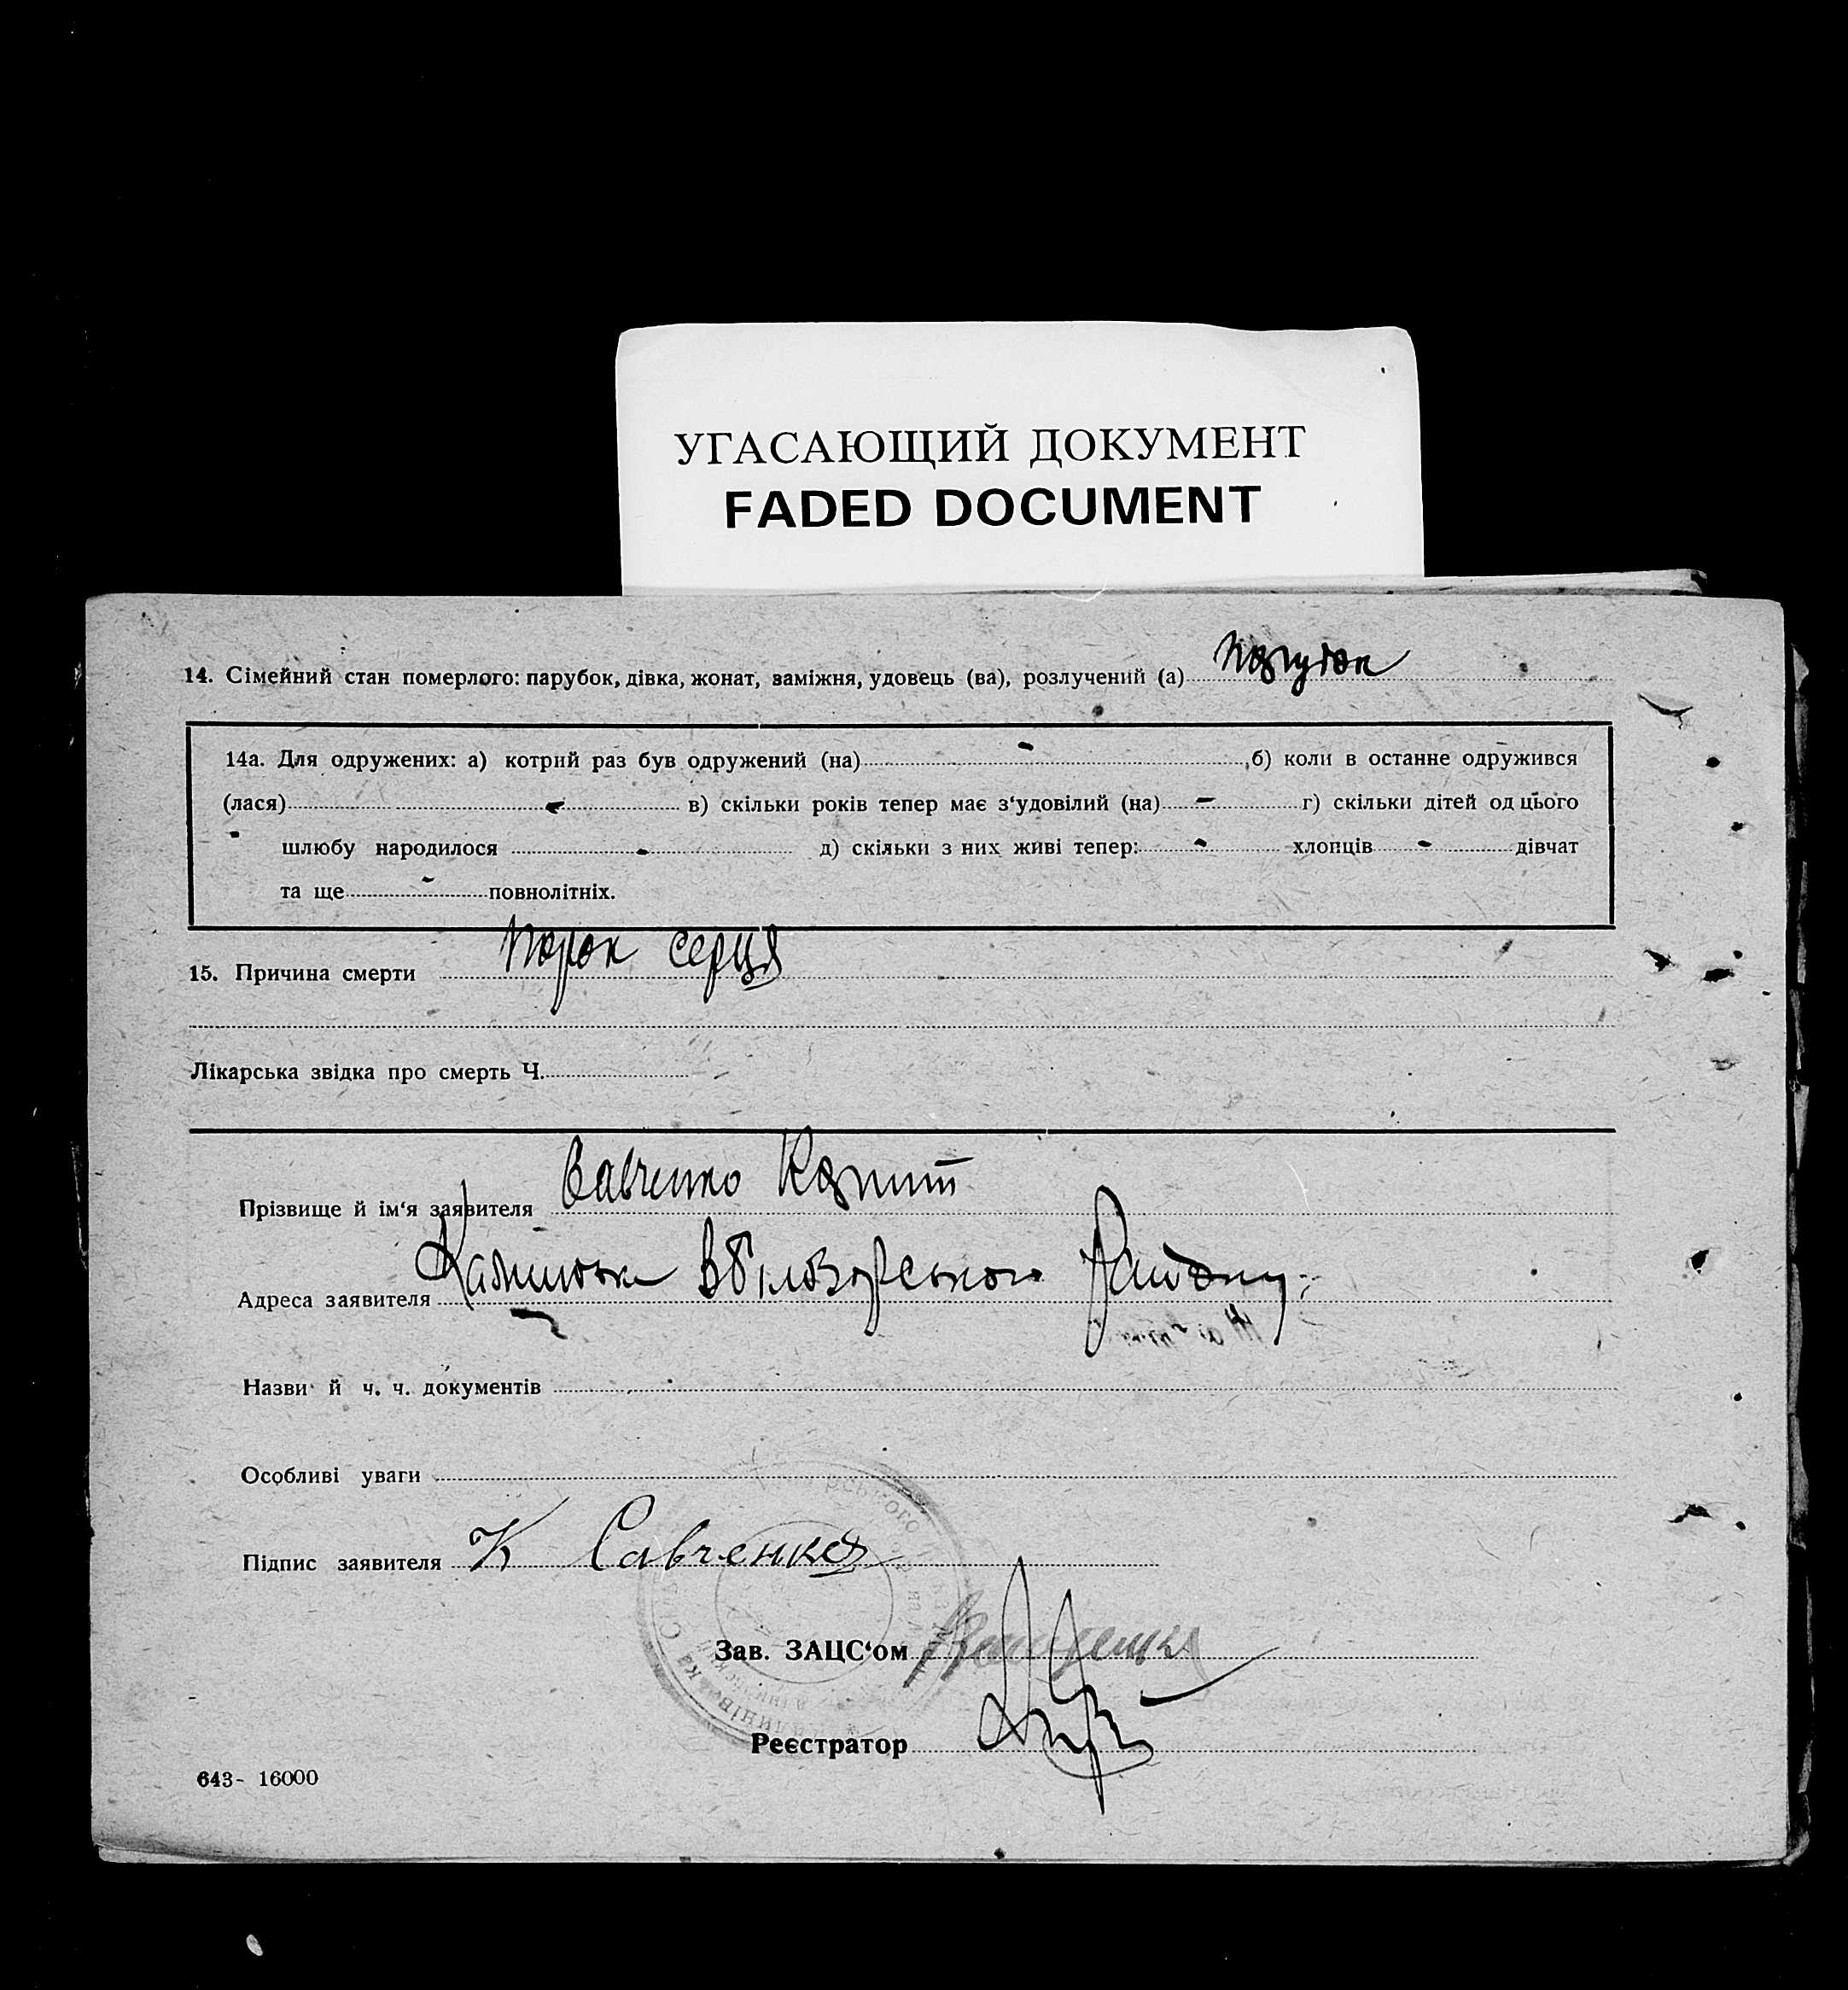 УГАСАЮЩИЙ ДОКУМЕНТ
FADED DOCUMENT
14. Сімейний стан померлого: парубок, дівка, жонат, заміжня, удовець (ва), розлучений (а) парубок
14а. Для одружених: а) котрий раз був одружений (на) - ,б) коли в останне одружився
(лася) - в) скільки років тепер має з‘удовілий (на) - г) скільки дітей од цього
шлюбу народилося - д) скільки з них живі тепер: - хлопців - дівчат
та ще - повнолітніх.
15. Причина смерти порок серця
Лікарська звідка про смерть Ч.
Прізвище й ім‘я заявителя Савченко
Адреса заявителя району
Назви й ч. ч. документів
Особливі уваги
Підпис заявителя К Савченко
Зав. ЗАЦС‘ом
Реєстратор
643- 16000